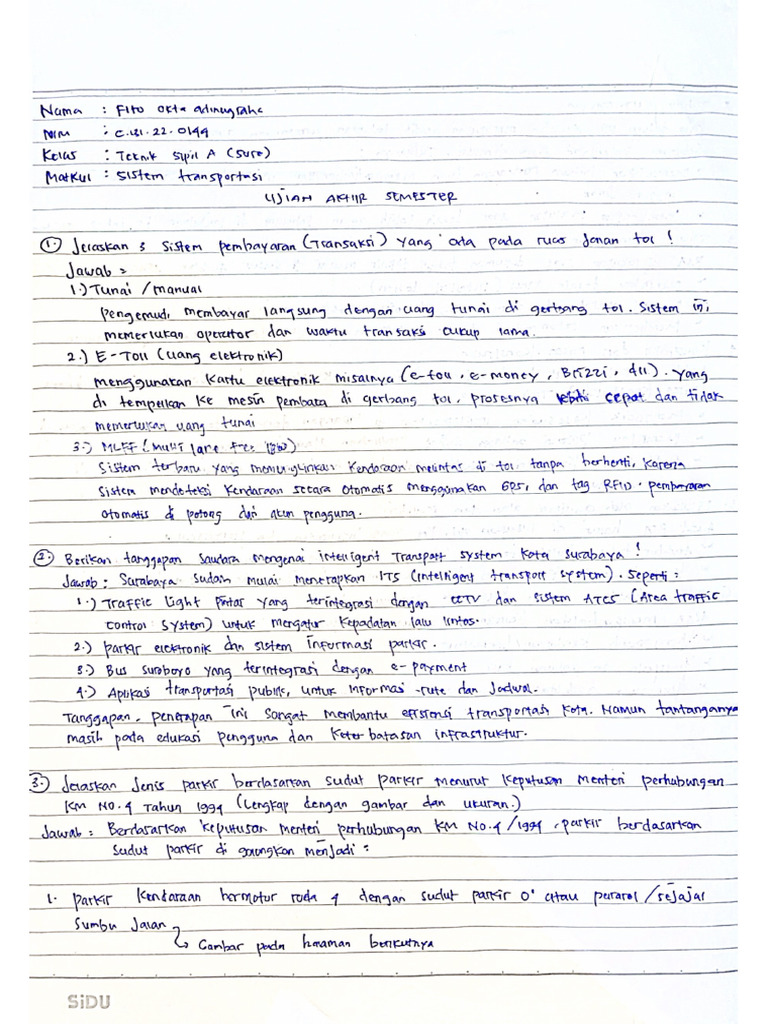 Nama : Fito Okta adinugraha
NIM : C.131.22.0149
Kelas : Teknik Sipil A (Sore)
Matkul : Sistem transportasi
UJIAN AKHIR SEMESTER
1. Jelaskan 3 sistem pembayaran (Transaksi) yang ada pada ruas Janan tol !
Jawab =
1.) Tunai / manual
pengemudi membayar langsung dengan uang tunai di gerbang tol. Sistem ini,
memerlukan operator dan waktu transaksi cukup lama.
2.) E-Toll (uang elektronik)
menggunakan kartu elektronik misalnya (e-toll, e-money, Brizzi, dll). yang
di tempelkan ke mesin pembaca di gerbang tol, prosesnya lebih cepat dan tidak
memerlukan uang tunai
3.) MLFF (multi lane free flow)
Sistem terbaru yang memungkinkan kendaraan melintas di tol tanpa berhenti, karena
sistem mendeteksi kendaraan secara otomatis menggunakan GPS, dan tag RFID. pembayaran
otomatis di potong dari akun pengguna.
2. Berikan tanggapan saudara mengenai intelligent Transport system kota surabaya !
Jawab : Surabaya sudah mulai menerapkan ITS (intelligent transport system). seperti :
1.) Traffic light pintar yang terintegrasi dengan CCTV dan sistem ATCS (Area traffic
control system) untuk mengatur kepadatan lalu lintas.
2.) parkir elektronik dan sistem informasi parkir.
3.) Bus suroboyo yang terintegrasi dengan e-payment
4.) Aplikasi transportasi publik, untuk informasi rute dan Jadwal.
Tanggapan, penerapan ini sangat membantu efisiensi transportasi kota. Namun tantanganya
masih pada edukasi pengguna dan keterbatasan infrastruktur.
3.) Jelaskan Jenis parkir berdasarkan sudut parkir menurut keputusan menteri perhubungan
KM NO.4 Tahun 1994 (Lengkap dengan gambar dan ukuran.)
Jawab : Berdasarkan keputusan menteri perhubungan KM No.4/1994, parkir berdasarkan
sudut parkir di golongkan menjadi :
1. parkir kendaraan bermotor roda 4 dengan sudut parkir 0° atau pararel / sejajar
Sumbu Jalan
Gambar pada halaman berikutnya
SiDU